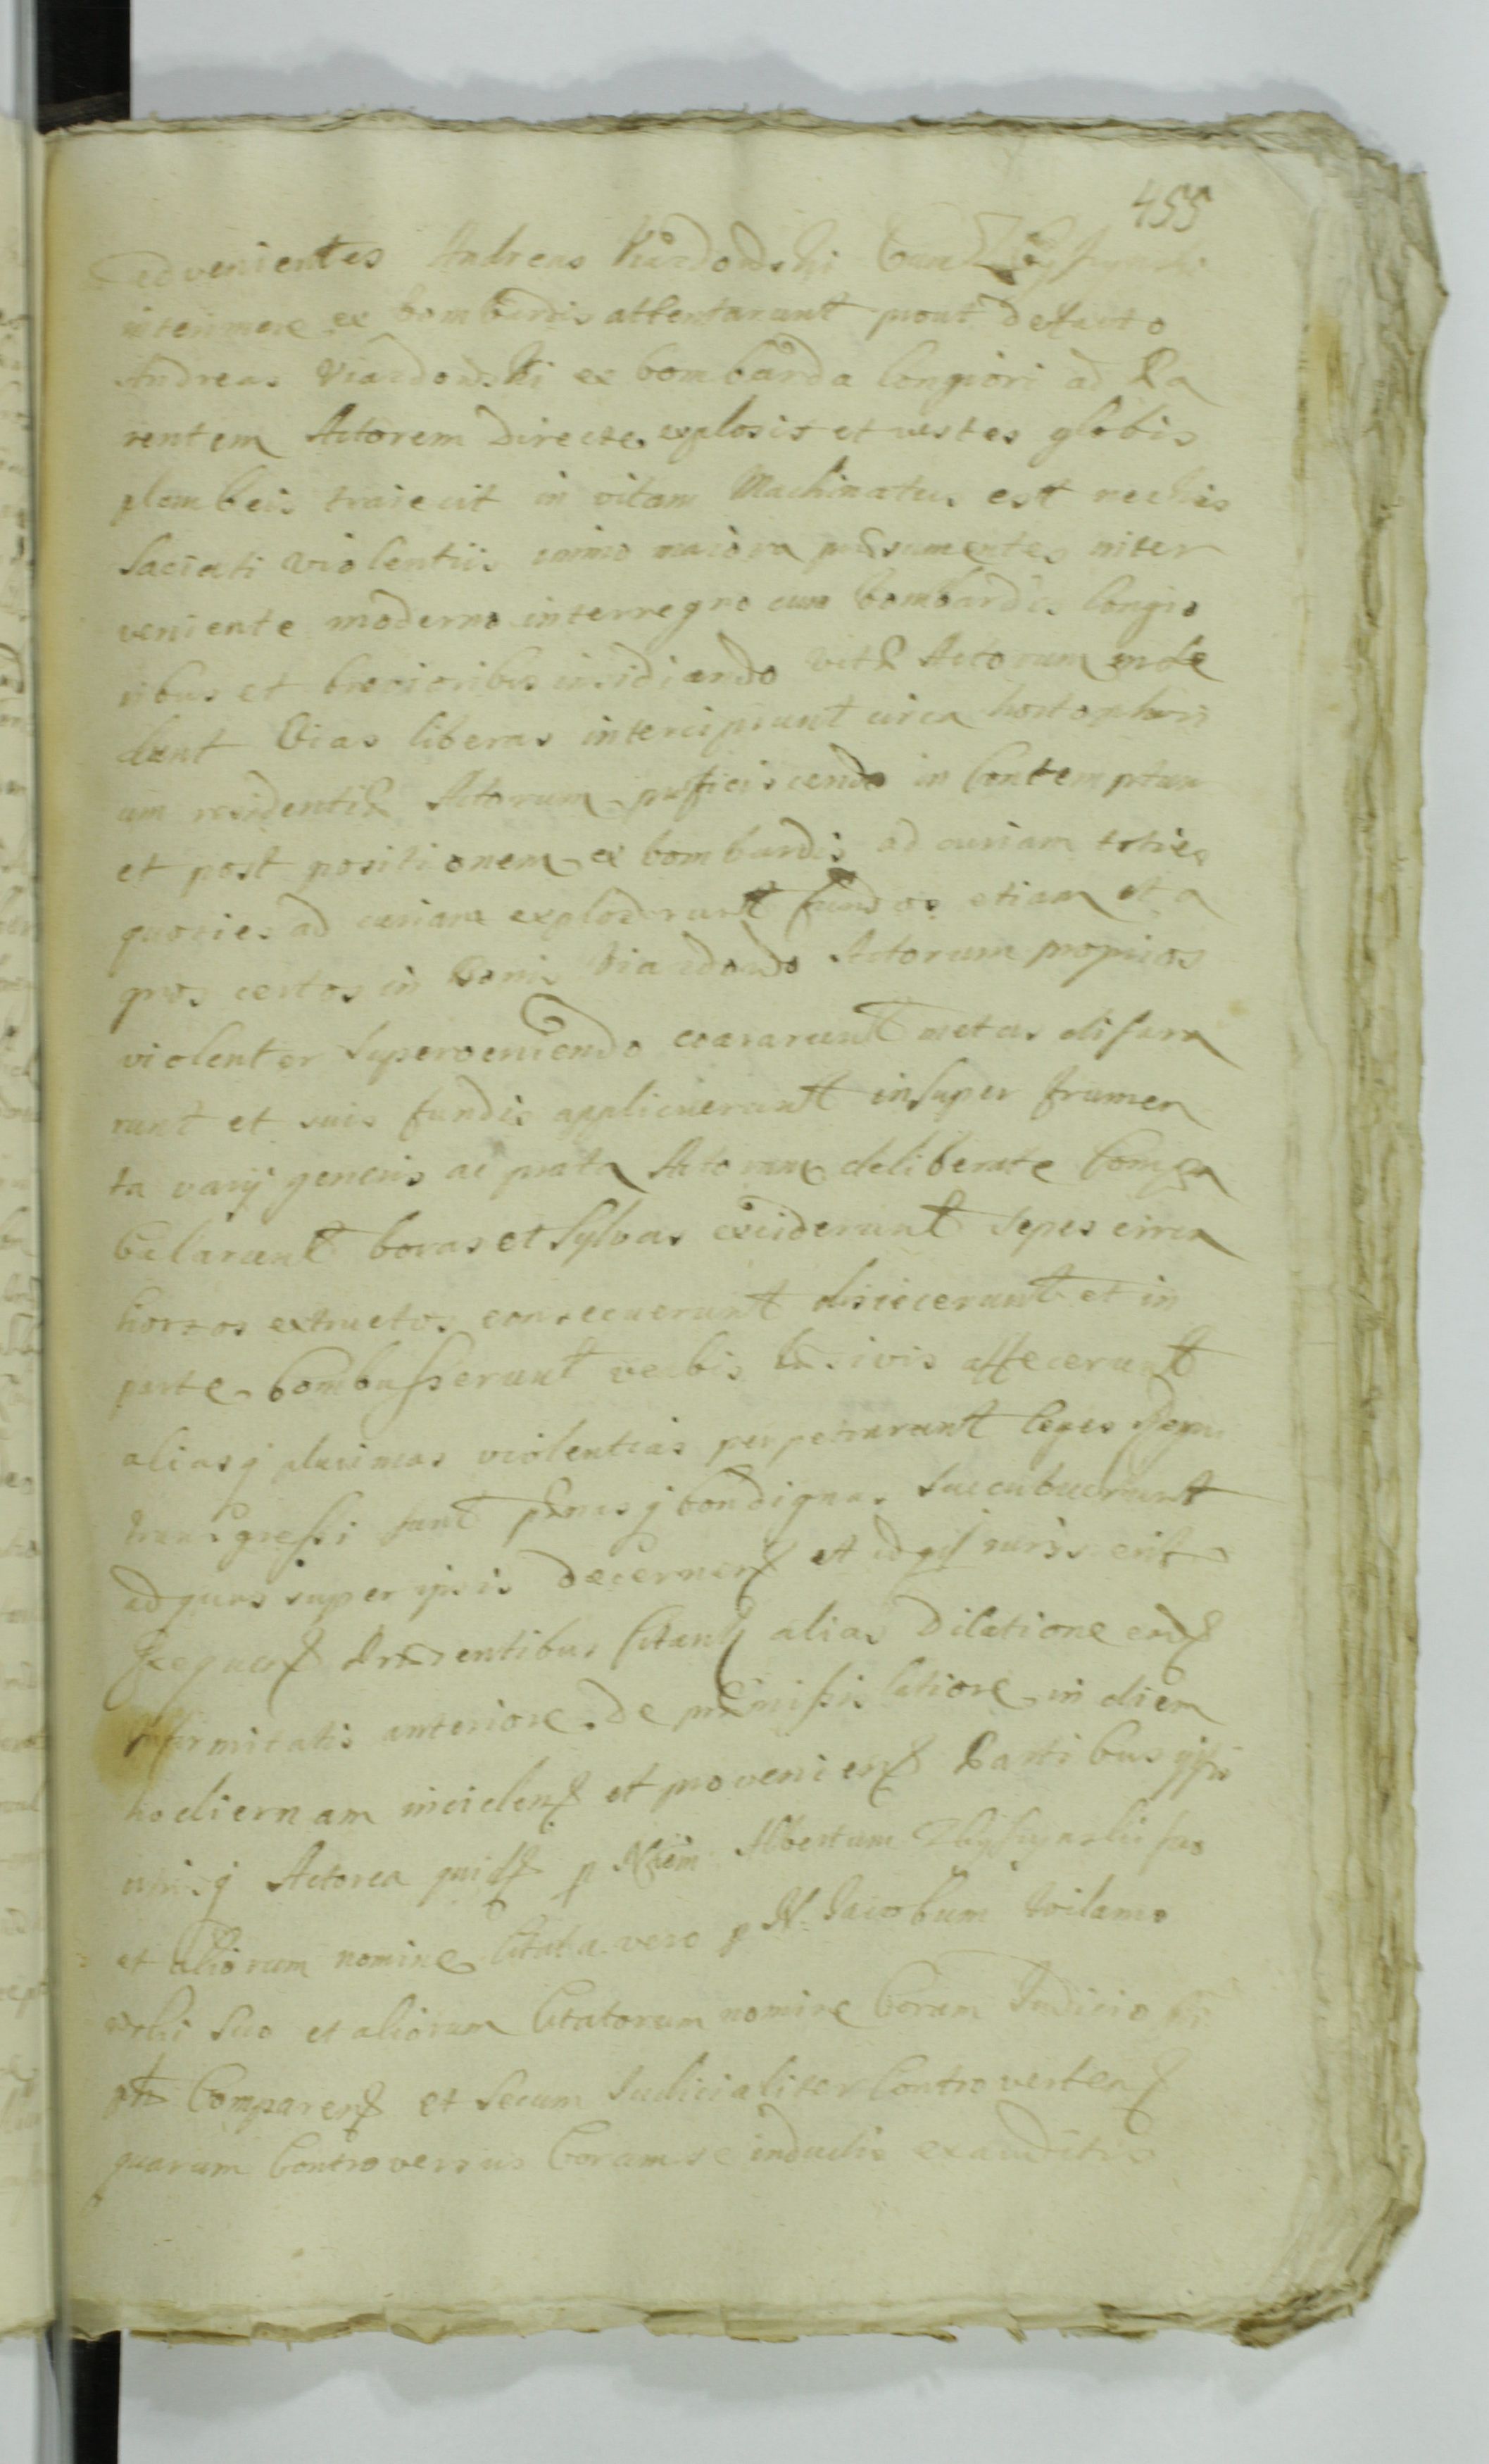 455
advenientes Andreas Viardowski Cum
interimere ex bombardis attentarunt prout defacto
Andreas Viardowski ex bombarda longiori ad Pa
rentem Actorem directe explosit et vestes globis
plombeis traiecit in vitam Machinatus est nec his
saciati violentiis immo maiora præsumentes inter
veniente moderno interregno cum bombardis longio
ribus et brevioribus insidiando vitæ Actorum
dunt Vias liberas intercipiunt circa hortos
um residentiæ Actorum proficiscendo in Contemptum
et post positionem ex bombardis ad curiam toties
quoties ad curiam exploderunt fundos etiam et a
gros certos in bonis Viardowo Actorum proprios
violenter superveniendo coararunt metas disara
runt et suis fundis applicuerunt insuper frumen
ta varij generis ac prata Actorum deliberate Compa
bularunt boras et sylvas exciderunt sepes circa
hortos extructos consecuerunt disiecerunt et in
parte Combusserunt verbis læsivis affecerunt
aliasq plurimas violentias perpetrarunt leges Regni
transgressi sunt pænasq Condignas succubuerunt
ad quas super ipsis decernen et id qd iuris erit
Exequen Præsentibus Citant alias dilatione
infirmitatis anteriore de præmissis latiore in diem
hodiernam inciden et provenien Partibus ipsis
Actorea quid p Nlem Albertum suo
et aliorum nomine Citata vero p N. Jacobum Wilamo
wski suo et aliorum Citatorum nomine Coram Judicio
Comparen et secum Judicialiter Controverten
quarum Controversiis Coram se inductis exauditis